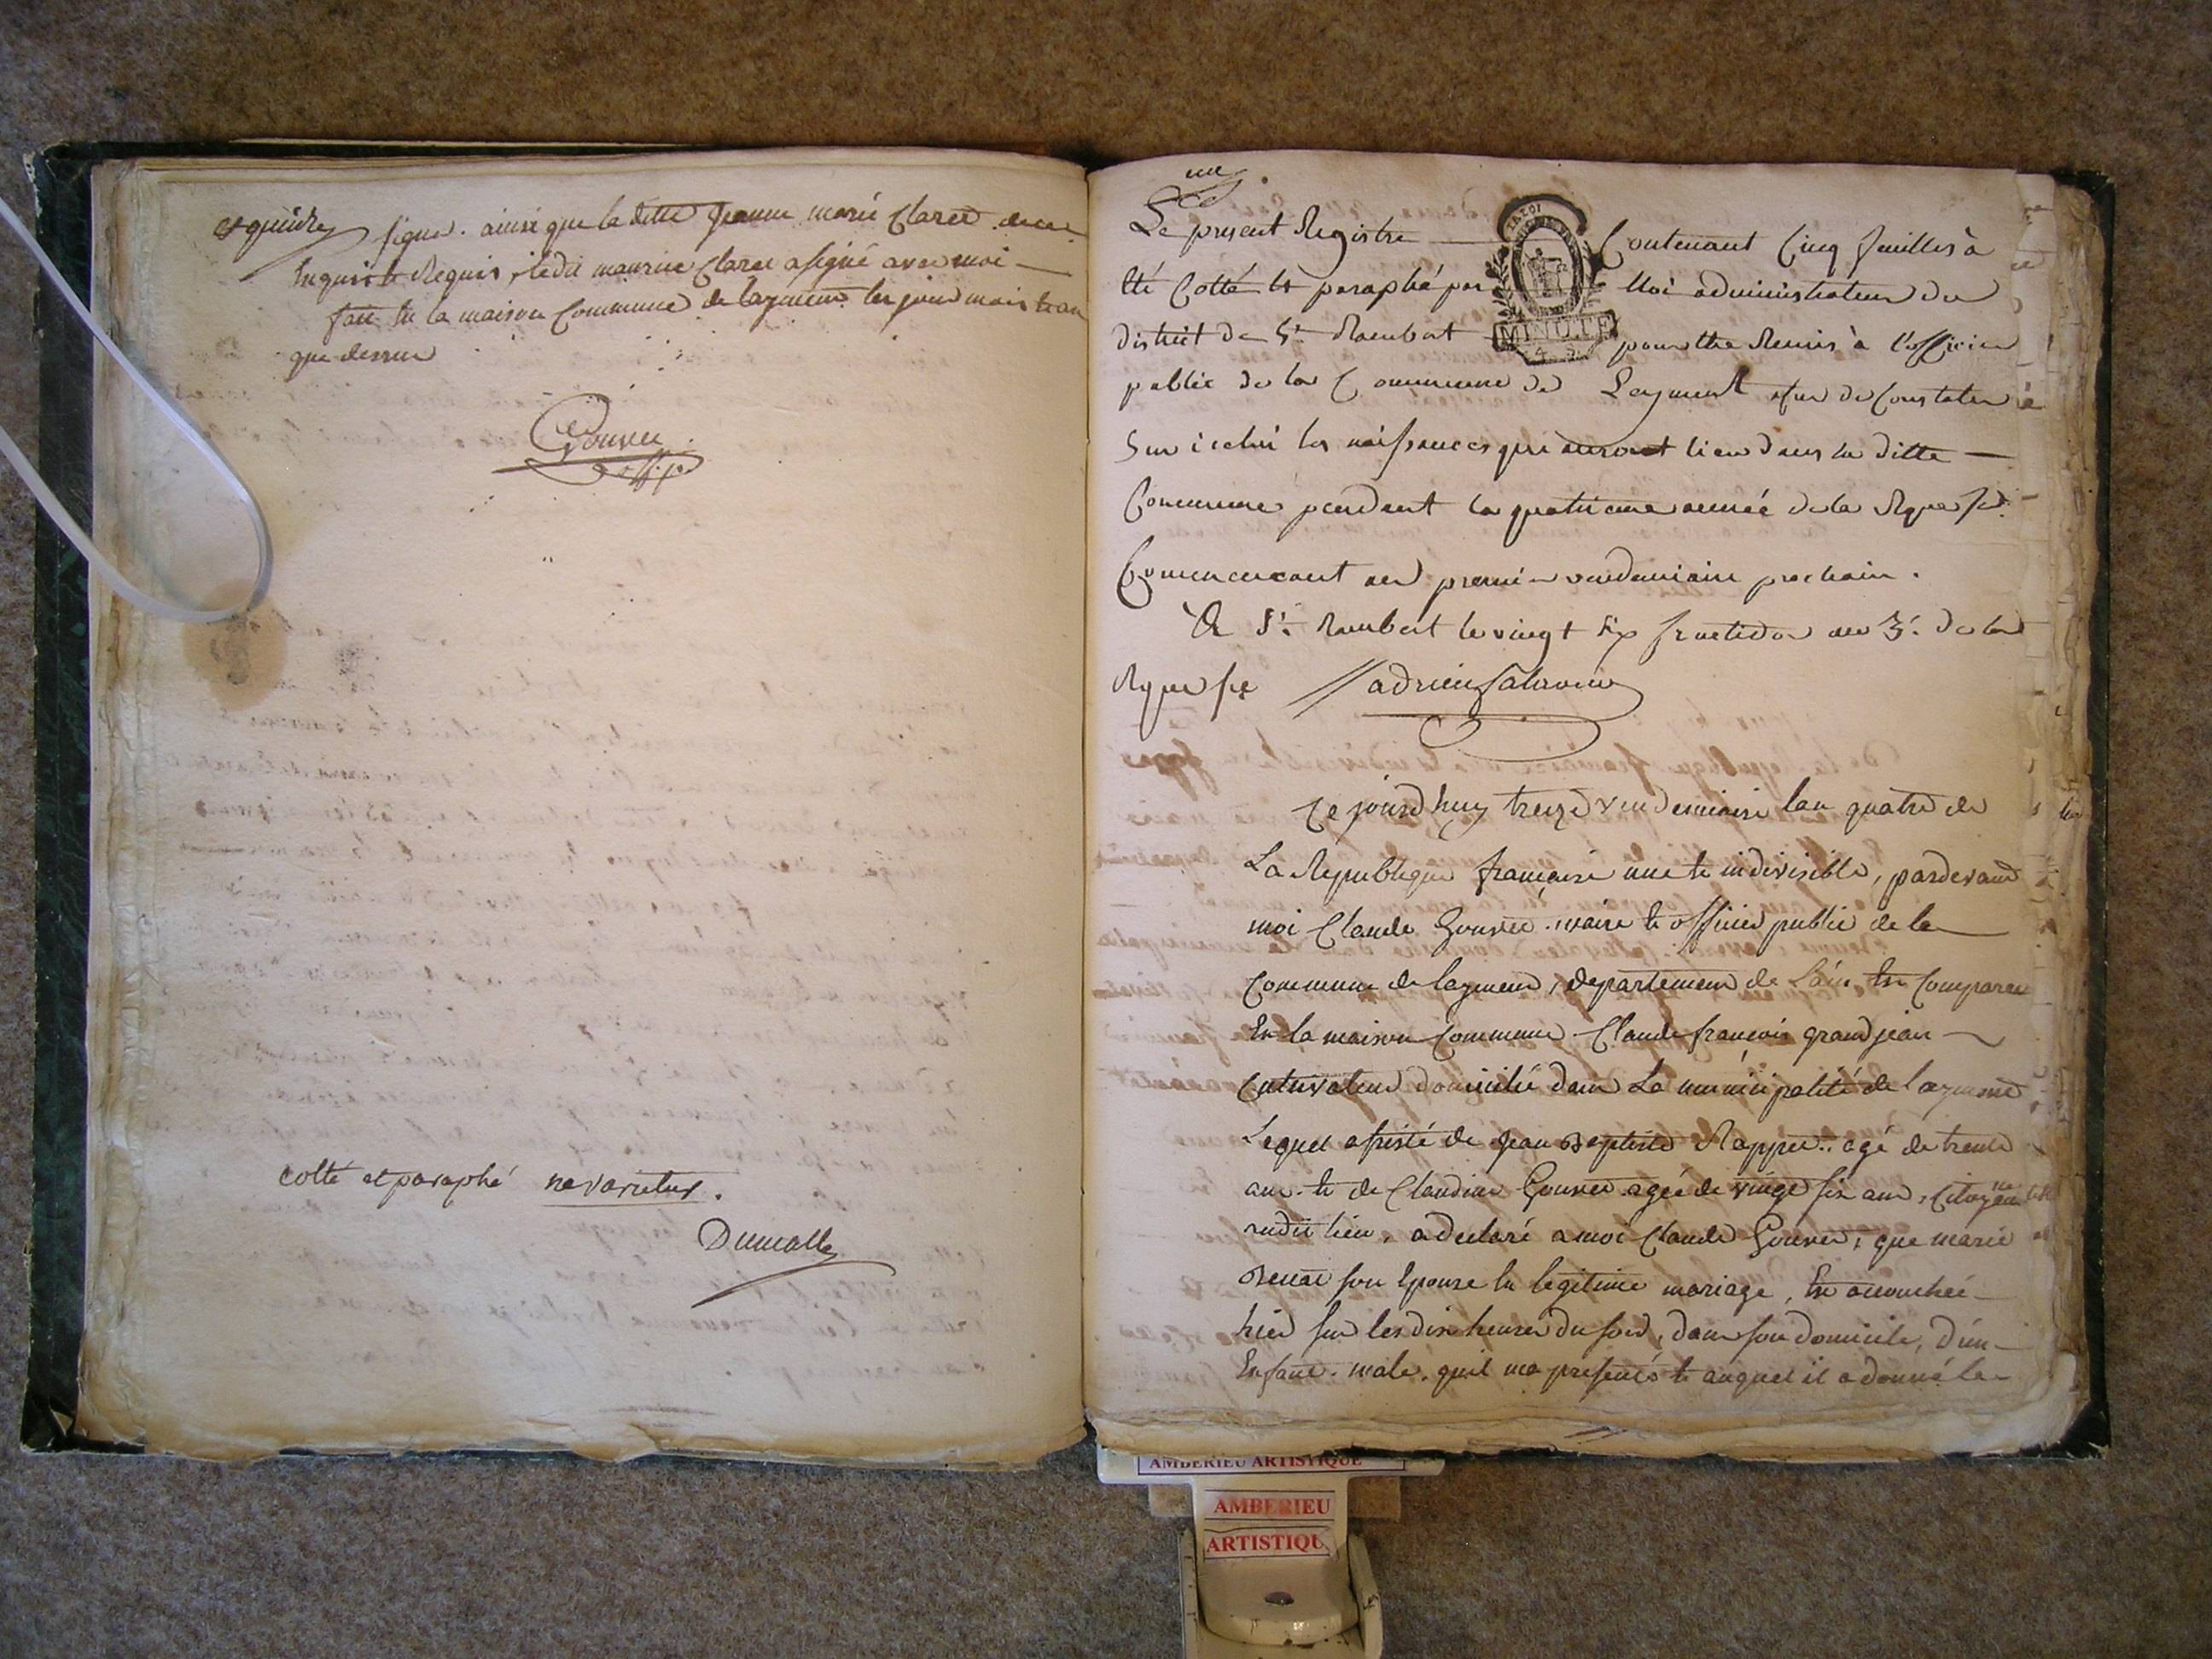 signer. ainsi que la ditte Jeanne marie Claret de ce
Enquis et Requis, ledit maurice Claret a signé avec moi
fait En la maison Commune de laymens les jour mois et an
que dessus
Gouvee
off. p.
cotté et paraphé ne varietur.
Dumolle
une
Le present Registre Contenant Cinq feuilles à
été Cotté et paraphé par Moi administrateur du
district de St. Rambert pour être Remis à l'officier
public de la Commune de Leyment afin de Constater
Sur icelui les naissances qui auront lieu dans la ditte
Commune pendent la quatrieme année de la Rque fse
Commencent au premier vendemiaire prochain.
A St. Rambert le vingt six fructidor an 3e. de la
Rque fse
MINUTE
Ce jourd'huy treize vendemiaire lan quatre de
La Republique française une et indivisible, pardevant
moi Claude Gouvee maire et officier public de la
Commune de laymens, departement de l'ain Est Comparu
En la maison Commune Claude françois grandjean
Cultivateur domicilié dans La municipalité de laymens
Lequel assisté de Jean Baptiste Rappet agé de trente
ans et de Claudine Gouvee agée de vingt six ans, Citoyens
dudit lieu, a declaré a moi Claude Gouvee, que marie
son Epouse En legitime mariage, Est accouchée
hier sur les dix heures du soir, dans son domicile, d'un
Enfant male, quil ma presenté et auquel il a donné le
AMBERIEU ARTISTIQUE
AMBERIEU
ARTISTIQU